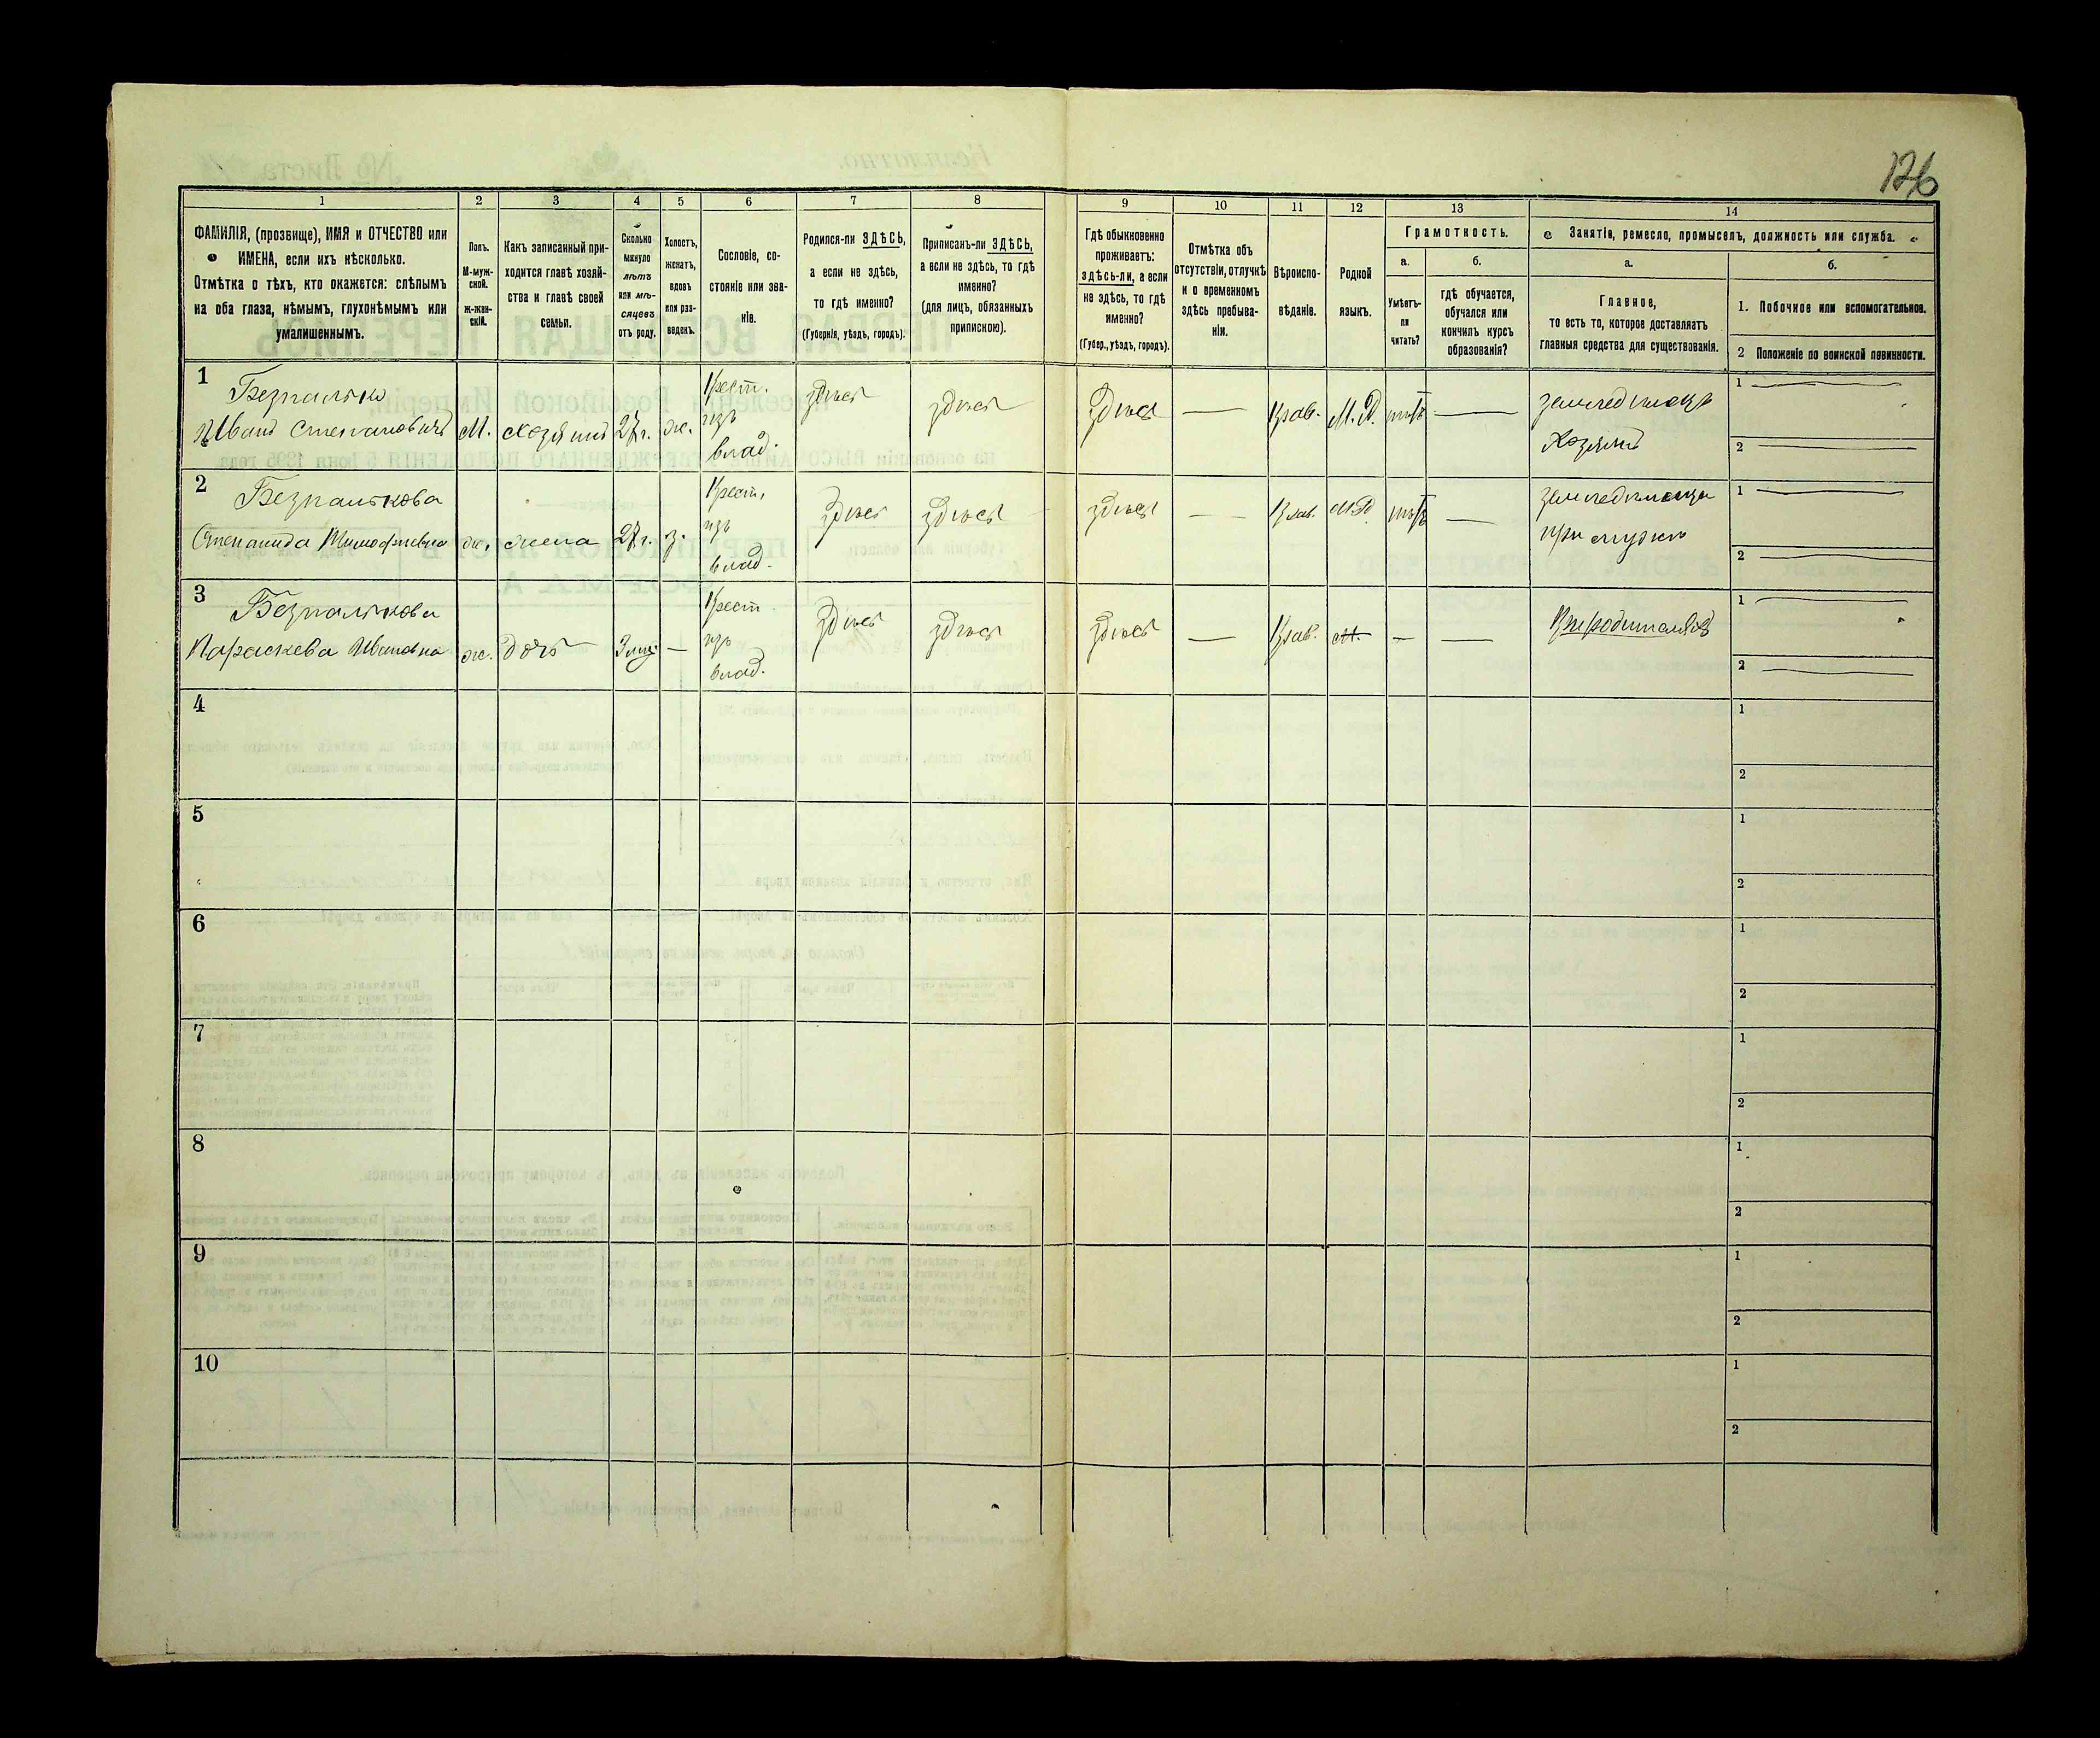 126
1
2
3
4
5
6
7
8
9
10
11
12
13
14
ФАМИЛІЯ, (прозвище), ИМЯ и ОТЧЕСТВО или
ИМЕНА, если ихъ нѣсколько.
Отмѣтка о тѣхъ, кто окажется: слѣпымъ
на оба глаза, нѣмымъ, глухонѣмымъ или
умалишеннымъ.
Полъ.
М-муж-
ской.
ж-жен-
скій.
Какъ записанный при-
ходится главѣ хозяй-
ства и главѣ своей
семьи.
Сколько
минуло
лѣтъ
или мѣ-
сяцевъ
отъ роду.
Холостъ,
женатъ,
вдовъ
или раз-
веденъ.
Сословіе, со-
стояніе или зва-
ніе.
Родился-ли ЗДѢСЬ,
а если не здѣсь,
то гдѣ именно?
(Губернія, уѣздъ, городъ).
Приписанъ-ли ЗДѢСЬ,
а если не здѣсь, то гдѣ
именно?
(для лицъ, обязанныхъ
припискою).
Гдѣ обыкновенно
проживаетъ:
здѣсь-ли, а если
не здѣсь, то гдѣ
именно?
(Губер., уѣздъ, городъ).
Отмѣтка объ
отсутствіи, отлучкѣ
и о временномъ
здѣсь пребыва-
ніи.
Вѣроиспо-
вѣданіе.
Родной
языкъ.
Грамотность.
а.
Умѣетъ-
ли
читать?
б.
гдѣ обучается,
обучался или
кончилъ курсъ
образованія?
Занятіе, ремесло, промыселъ, должность или служба.
а.
Главное,
то есть то, которое доставляетъ
главныя средства для существованія.
б.
1. Побочное или вспомогательное.
2 Положеніе по воинской повинности.
1
Безпалько
Иванъ Степановичъ
М.
хозяинъ
27 г.
ж.
Крест.
изъ
влад.
здѣсь
здѣсь
здѣсь
Прав.
М. Р.
нѣтъ
земледѣлецъ
Хозяинъ
1
2
2
Безпалькова
Степанида Тимофѣевна
ж.
жена
27 г.
з.
Крест.
изъ
влад.
здѣсь
здѣсь
здѣсь
Прав.
М Р
нѣтъ
земледѣлица
при мужѣ
1
2
3
Безпалькова
Параскева Ивановна
ж.
дочь
3 мѣс.
Крест.
изъ
влад.
здѣсь
здѣсь
здѣсь
Прав.
При родителяхъ
1
2
4
1
2
5
1
2
6
1
2
7
1
2
8
1
2
9
1
2
10
1
2